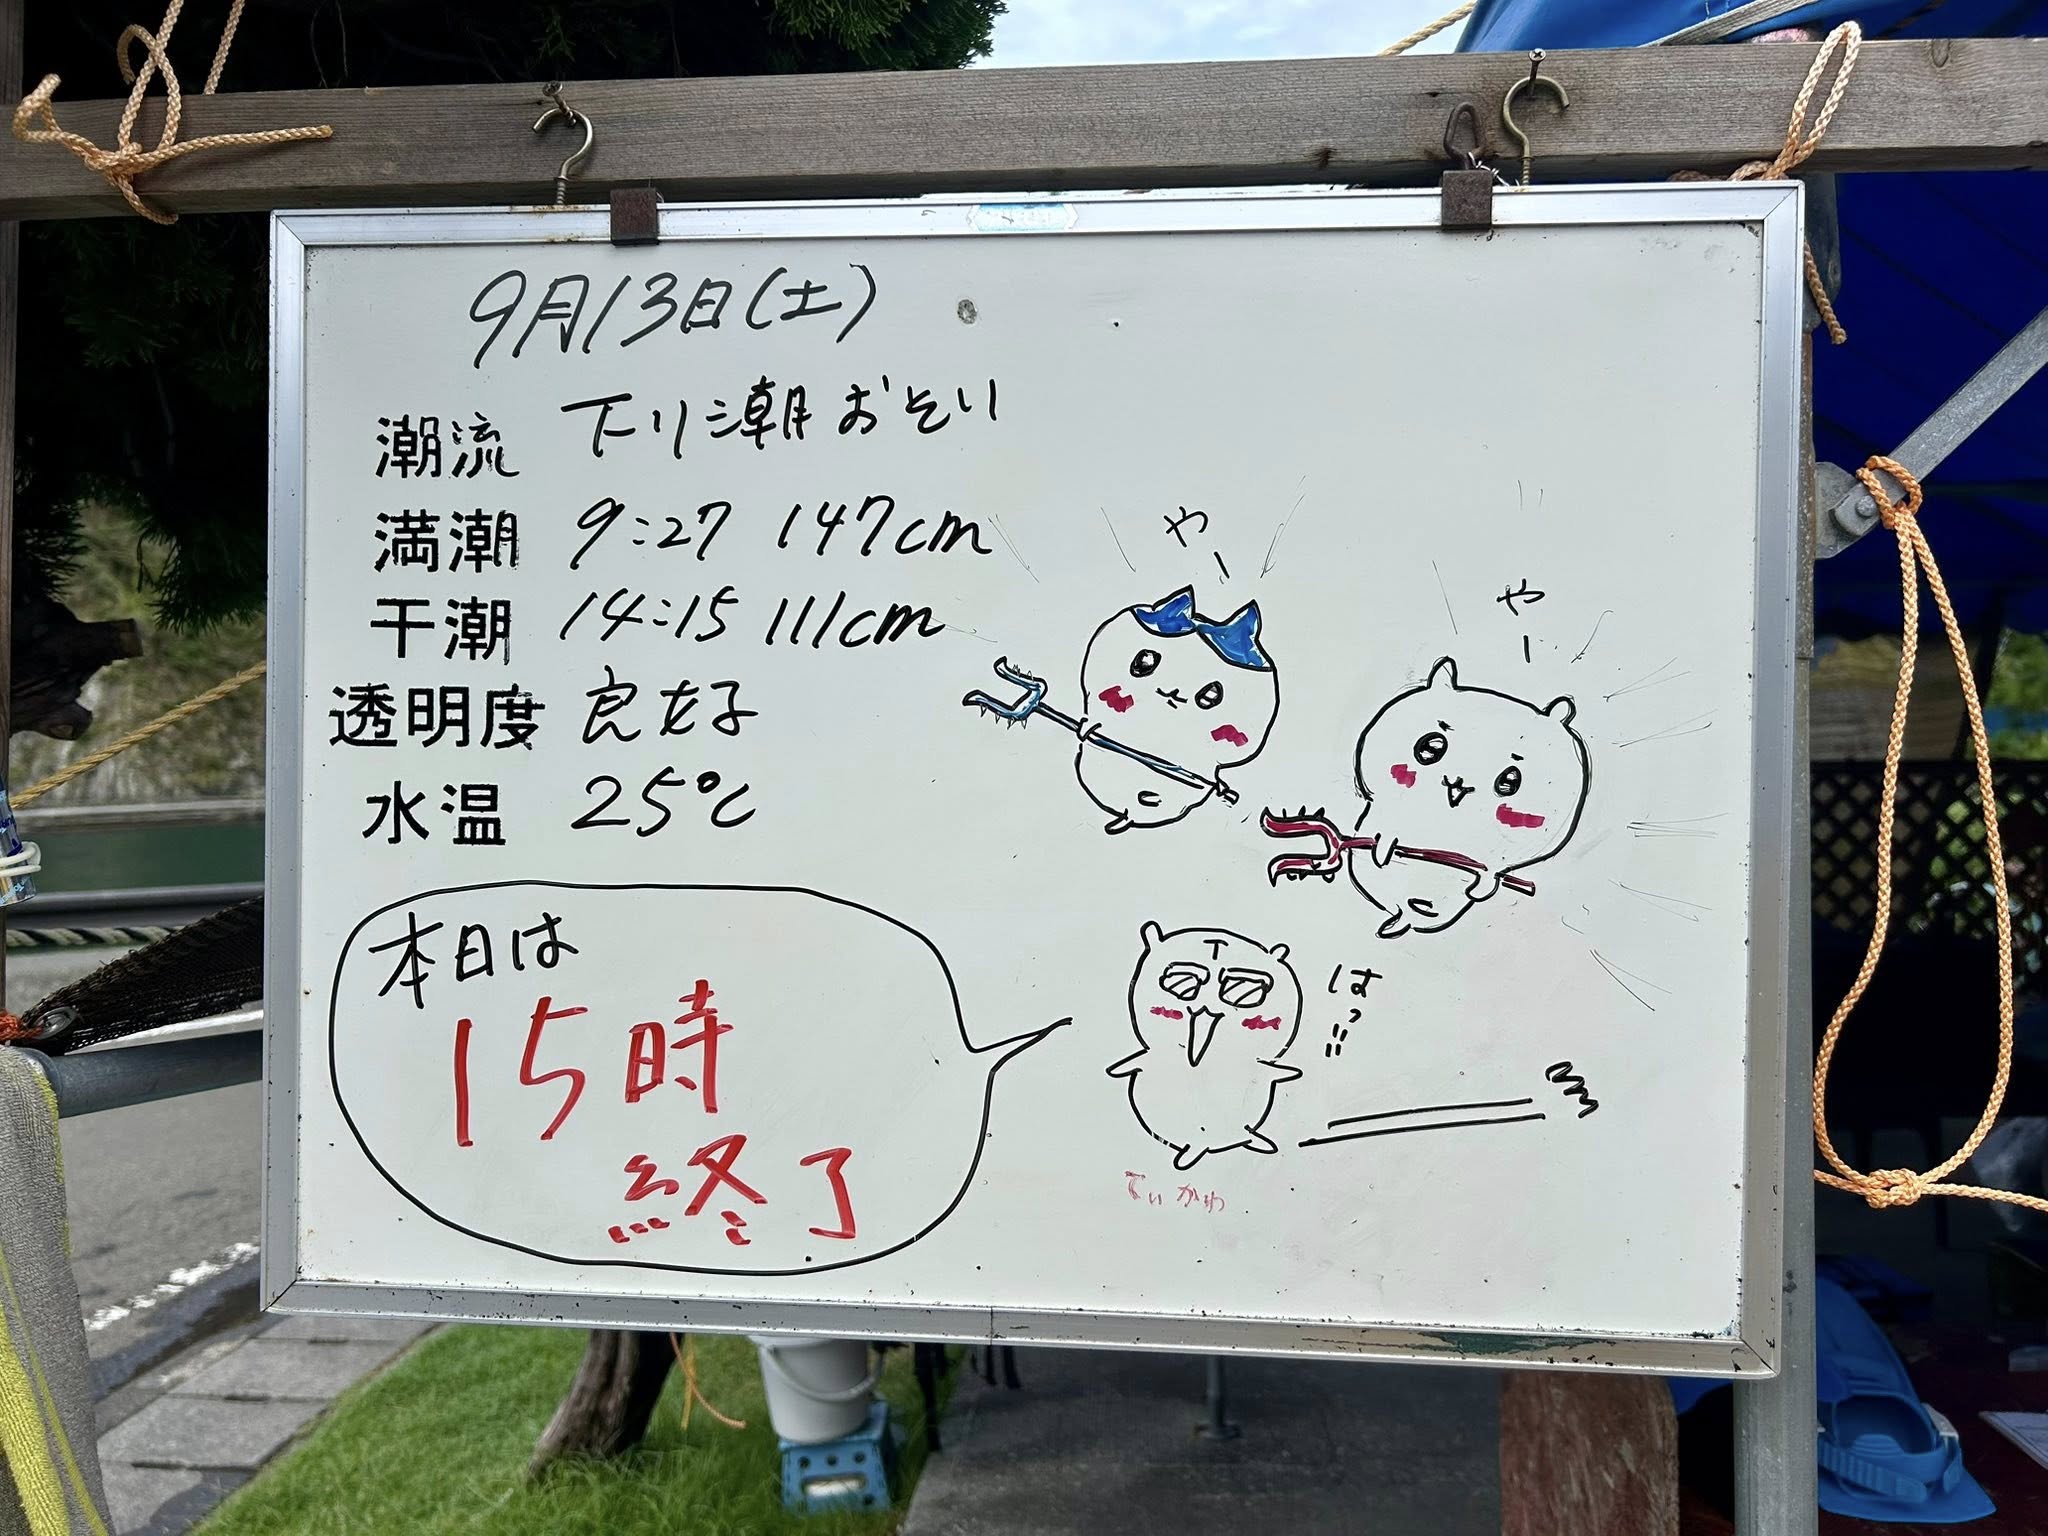 9月13日(土)
潮流 下り潮おそい
満潮 9:27 147cm
干潮 14:15 111cm
透明度 良好
水温 25℃
やー
やー
本日は
15時
終了
はっ!!
てぃかわ